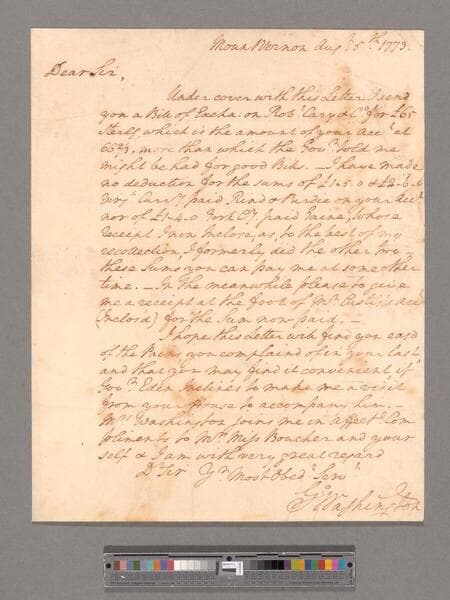 Mount Vernon Augt 5th 1773.
Dear Sir,
Under cover with this Letter I send
you a Bill of Excha: on Robt Cary & Co for £65
Sterlg, which is the amount of your Acct at
more than which the Govr told me
might be had for good Bills. — I have made
no deduction for the sums of £1.5.0 & £2.6.
Curry paid Rind & Purdie on your Acct
nor of £1.4.0 York Cy paid whose
receipt I now Inclose, as, to the best of my
recollection, I formerly did the other two
these Sums you can pay me at some other
time. — In the meanwhile please to give
me a receipt at the foot of Mr Custis's Acct
(Inclos'd) for the Sum now paid. —
I hope this Letter will find you eas'd
of the you complain'd of in your last,
and that you may find it convenient if
Govr Eden inclines to make me a visit
from your House to accompany him. —
Mrs Washington joins me in affecte Com
pliments to Mrs Miss Boucher and your
self & I am with very great regard
Dr Sir Yr Most Obedt Servt
Go Washington